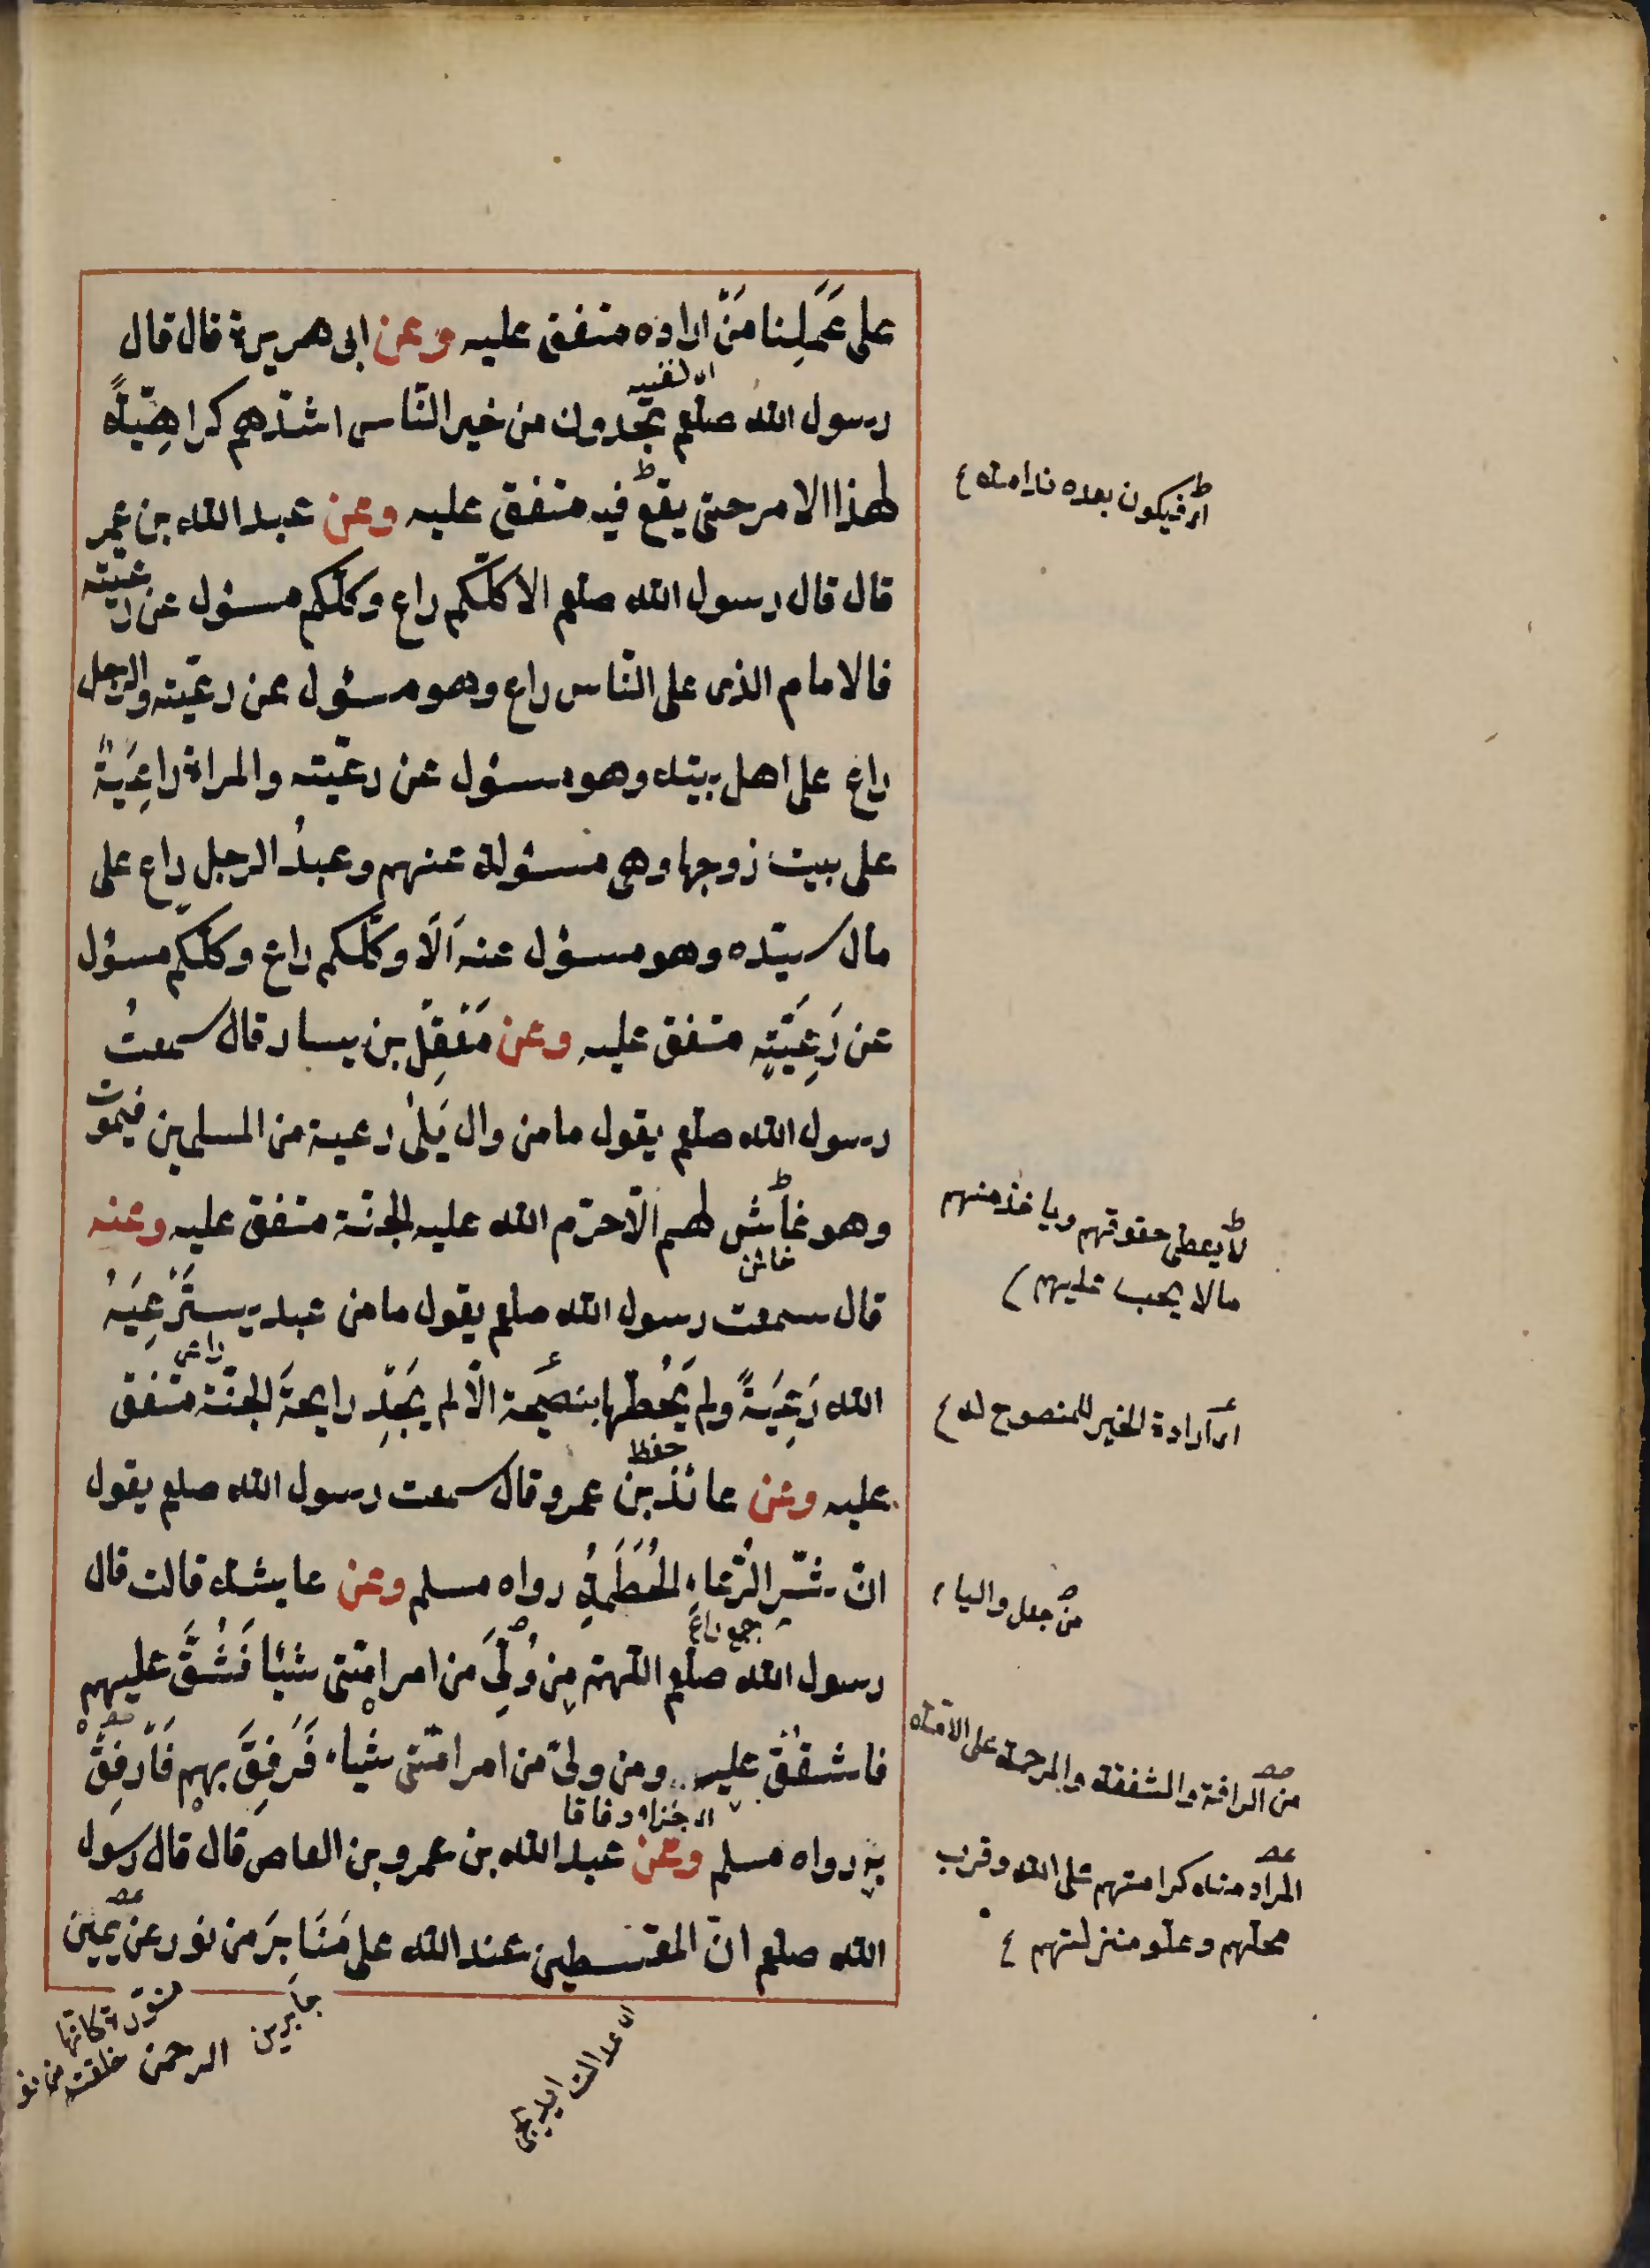 على عَمَلِنا مَنْ اراده متفق عليه وعن ابى هريرة قال قال
رسول الله صلعم تجدون من خير النّاس اشدّهم كراهِيَةً
لهذا الامر حتى يقع فيه متفق عليه وعن عبد الله بن عمر
قال قال رسول الله صلعم الا كلّكم راع وكلّكم مسئول عن رعيّته
فالامام الذى على النّاس راع وهو مسئول عن رعيّته والرجل
راع على اهل بيته وهو مسئول عن رعيّته والمراة راعِيَةٌ
على بيت زوجها وهى مسئولة عنهم وعبدُ الرجل راع على
مال سيّده وهو مسؤل عنه اَلَا وكلّكم راع وكلّكم مسؤل
عن رَعِيَّتِه متفق عليه وعن مَعْقِل بن يسار قال سمعتُ
رسول الله صلعم يقول ما من وال يَلىْ رعية من المسلمين فيموت
وهو غاشّ لهم الّا حرّم الله عليه الجنّة متفق عليه وعنه
خائن
قال سمعت رسول الله صلعم يقول ما من عبد يسترْعِيَهُ
راعى
الله رَعِيَةً ولم يَحُطْها بنصيحة الّا لم يَجِدْ رايحةَ الجنّة متفق
حفظ
عليه وعن عائذ بن عمرو قال سمعت رسول الله صلعم يقول
انّ شرّ الرّعاءِ الحُطَمَةُ رواه مسلم وعن عايشة قالت قال
جمع راع
رسول الله صلعم اللهمّ من وُلِّىَ من امر امّتى شيْأ فَشُقَّ عليهم
فاشقُقْ عليه ومن ولىّ من امر امّتى شياء فَرَفِقَ بهم فَارْفِقْ
جزاء وفاقا
به رواه مسلم وعن عبد الله بن عمرو بن العاص قال قال رسول
الله صلعم انّ المقسطين عند الله على مَنَابِرَ من نور عن يمين
فيكون بعده ندامة
لا يعطى حقوقهم وياخذ منهم
مالا يجب عليهم
ارادة الخير للمنصوح له
من جعل واليا
من الرافة والشفقة والمرحمة على الامة
المراد منه كرامتهم على الله وقرب
محلّهم وعلو منزلتهم
الرحمن خلقت من نو